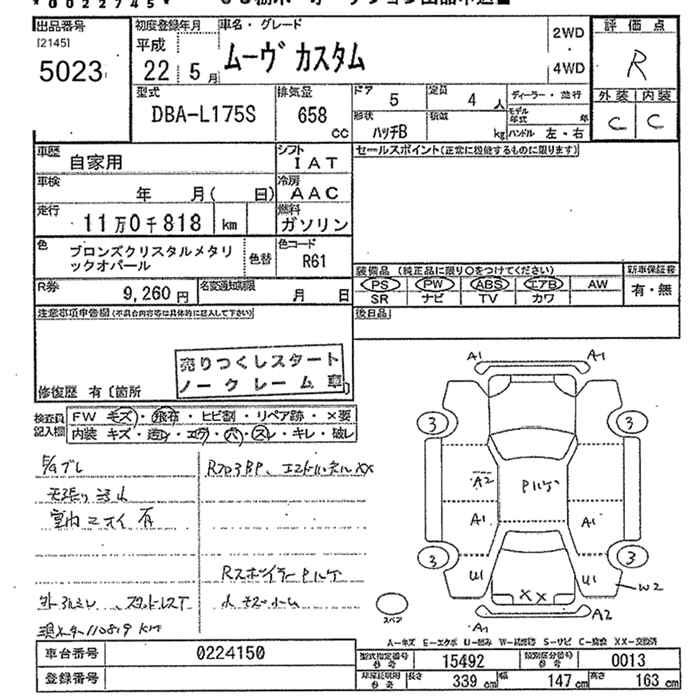 出品番号
[2145]
5023
初度登録年月
平成
22 5月
車名・グレード
ムーヴ カスタム
2WD
4WD
評価点
R
外装 内装
C C
型式
DBA-L175S
排気量
658
CC
ドア
5
定員
4 人
ディーラー・並行
形状
ハッチB
積載
kg
モデル年式 年
ハンドル 左・右
車歴
自家用
シフト
IAT
車検
年 月( 日)
冷房
AAC
走行
11万0千818 km
燃料
ガソリン
色
ブロンズクリスタルメタリ
ックオパール
色替
色コード
R61
R券
9,260円
名変通知期限
月 日
セールスポイント(正常に機能するものに限ります)
装備品 (純正品に限り○をつけてください)
新車保証書
PS PW ABS エアB AW
有・無
SR ナビ TV カワ
後日品
注意事項申告欄(不具合内容等は具体的に記入して下さい)
売りつくしスタート
ノークレーム車
修復歴 有〔箇所
検査員
記入欄
FW キズ・飛石・ヒビ割・リペア跡・×要
内装 キズ・汚レ・エグ・穴・スレ・キレ・破レ
天張り
室内ニオイ有
RスポイラーPルケ
A1 A1
3 3
A2
Pルケ
A1 A1
3 3
U1 U1
XX
W2
A1 A2
スペア
A-キズ E-エクボ U-凹み W-波 S-サビ C-腐食 XX-交換済
車台番号
0224150
登録番号
型式指定番号
参考
15492
類別区分番号
参考
0013
長さ
339 cm
幅
147 cm
高さ
163 cm